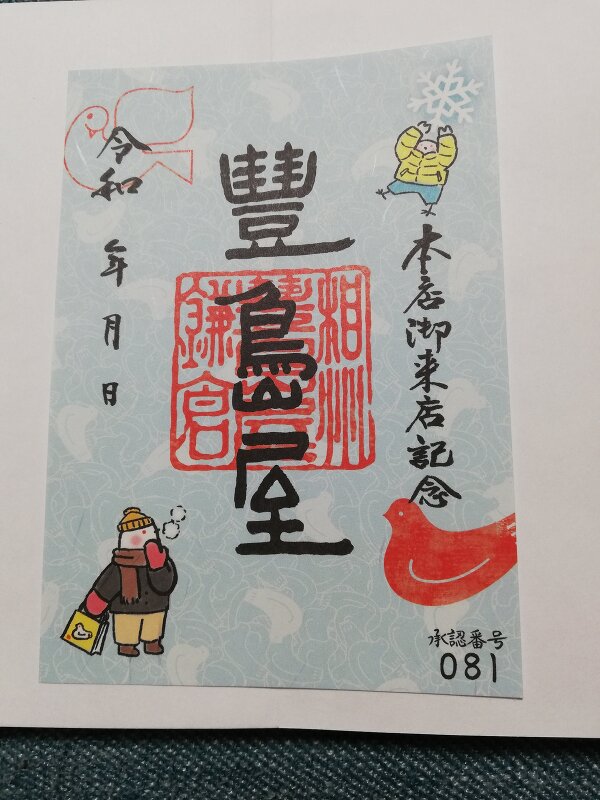 本店御来店記念
豐島屋
相州
豊島屋
鎌倉
令和 年 月 日
承認番号
081